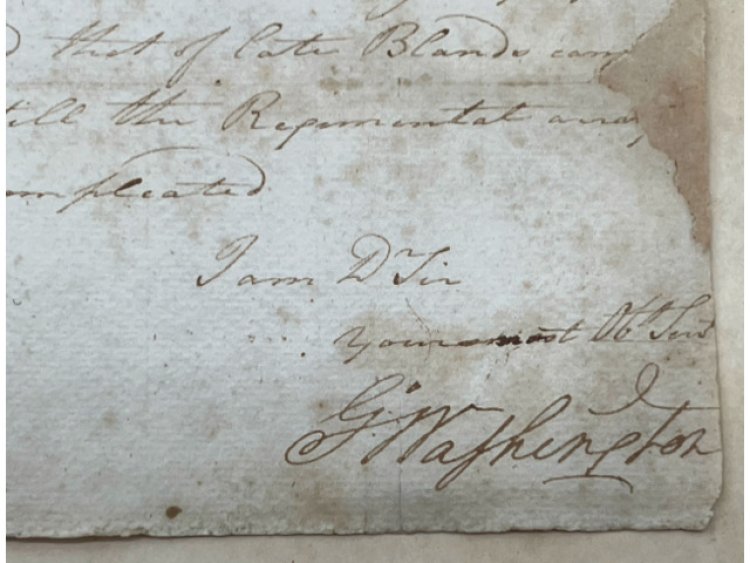 that of late Blands
till the Regimental
ompleated
I am Dr Sir
Your most Obt Serv
Go Washington